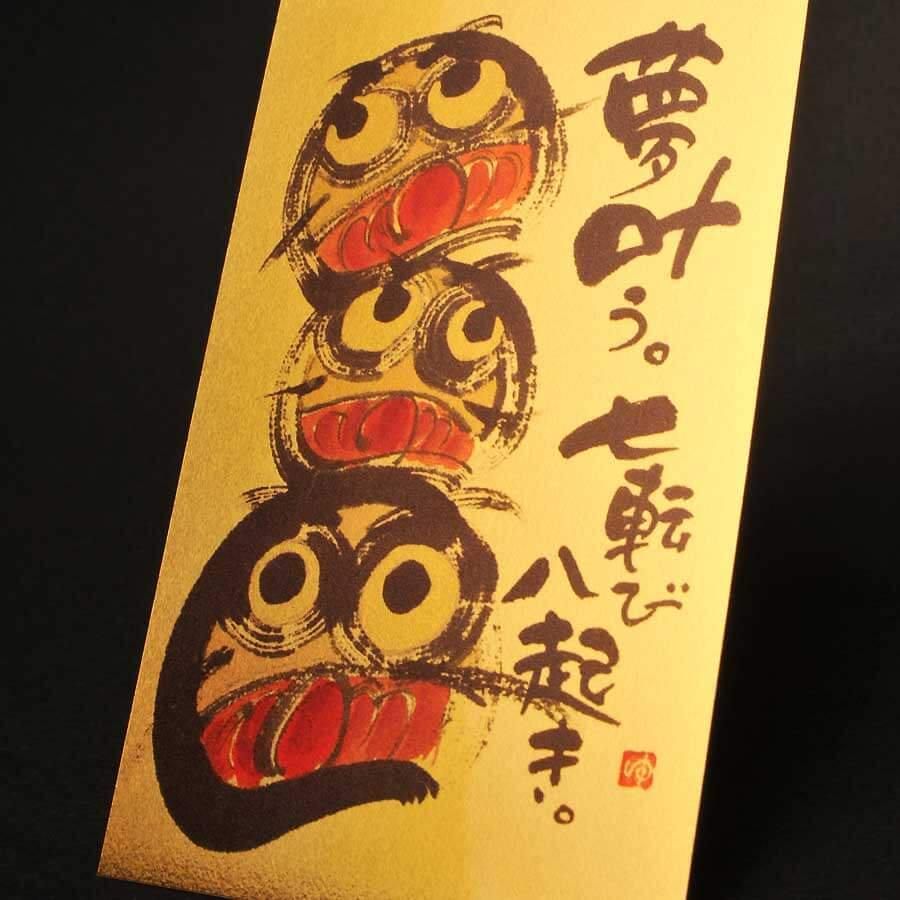 夢叶う。七転び
八起き。
ゆ